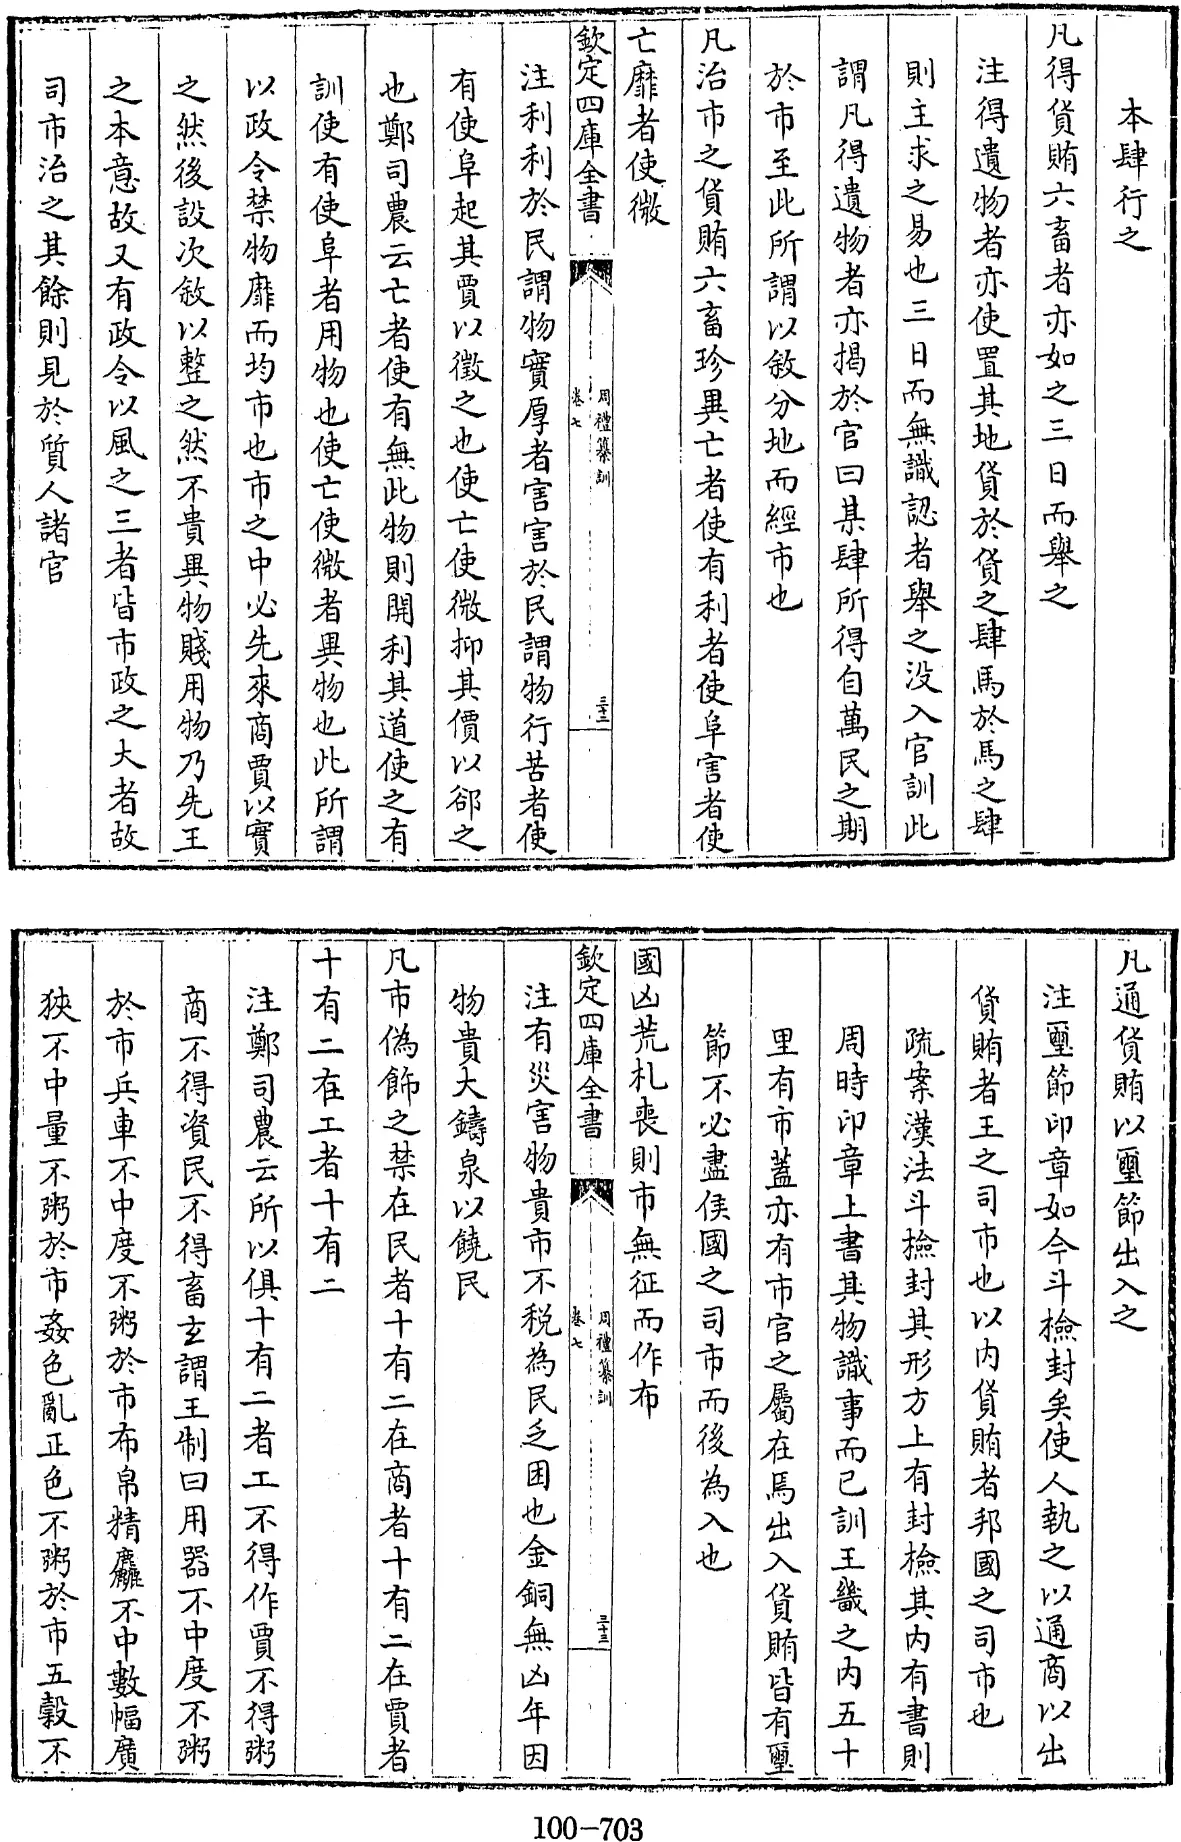 本肆行之
凡得貨賄六畜者亦如之三日而舉之
注得遺物者亦使置其地貨於貨之肆馬於馬之肆
則主求之易也三日而無識認者舉之没入官訓此
謂凡得遺物者亦揭於官曰某肆所得自萬民之期
於市至此所謂以敘分地而經市也
凡治市之貨賄六畜珍異亡者使有利者使阜害者使
亡靡者使微
欽定四庫全書
周禮纂訓
卷七
三十二
注利利於民謂物實厚者害害於民謂物行苦者使
有使阜起其賈以徵之也使亡使微抑其價以郤之
也鄭司農云亡者使有無此物則開利其道使之有
訓使有使阜者用物也使亡使微者異物也此所謂
以政令禁物靡而均市也市之中必先來商賈以實
之然後設次敘以整之然不貴異物賤用物乃先王
之本意故又有政令以風之三者皆市政之大者故
司市治之其餘則見於質人諸官
凡通貨賄以璽節出入之
注璽節印章如今斗檢封矣使人執之以通商以出
貨賄者王之司市也以内貨賄者邦國之司市也
疏案漢法斗撿封其形方上有封檢其内有書則
周時印章上書其物識事而已訓王畿之内五十
里有市蓋亦有市官之屬在焉出入貨賄皆有璽
節不必盡侯國之司市而後為入也
國凶荒札喪則市無征而作布
欽定四庫全書
周禮纂訓
卷七
三十三
注有災害物貴市不税為民乏困也金銅無凶年因
物貴大鑄泉以饒民
凡市偽飾之禁在民者十有二在商者十有二在賈者
十有二在工者十有二
注鄭司農云所以俱十有二者工不得作賈不得粥
商不得資民不得畜玄謂王制曰用器不中度不粥
於市兵車不中度不粥於市布帛精麤不中數幅廣
狹不中量不粥於市姦色亂正色不粥於市五穀不
100-703